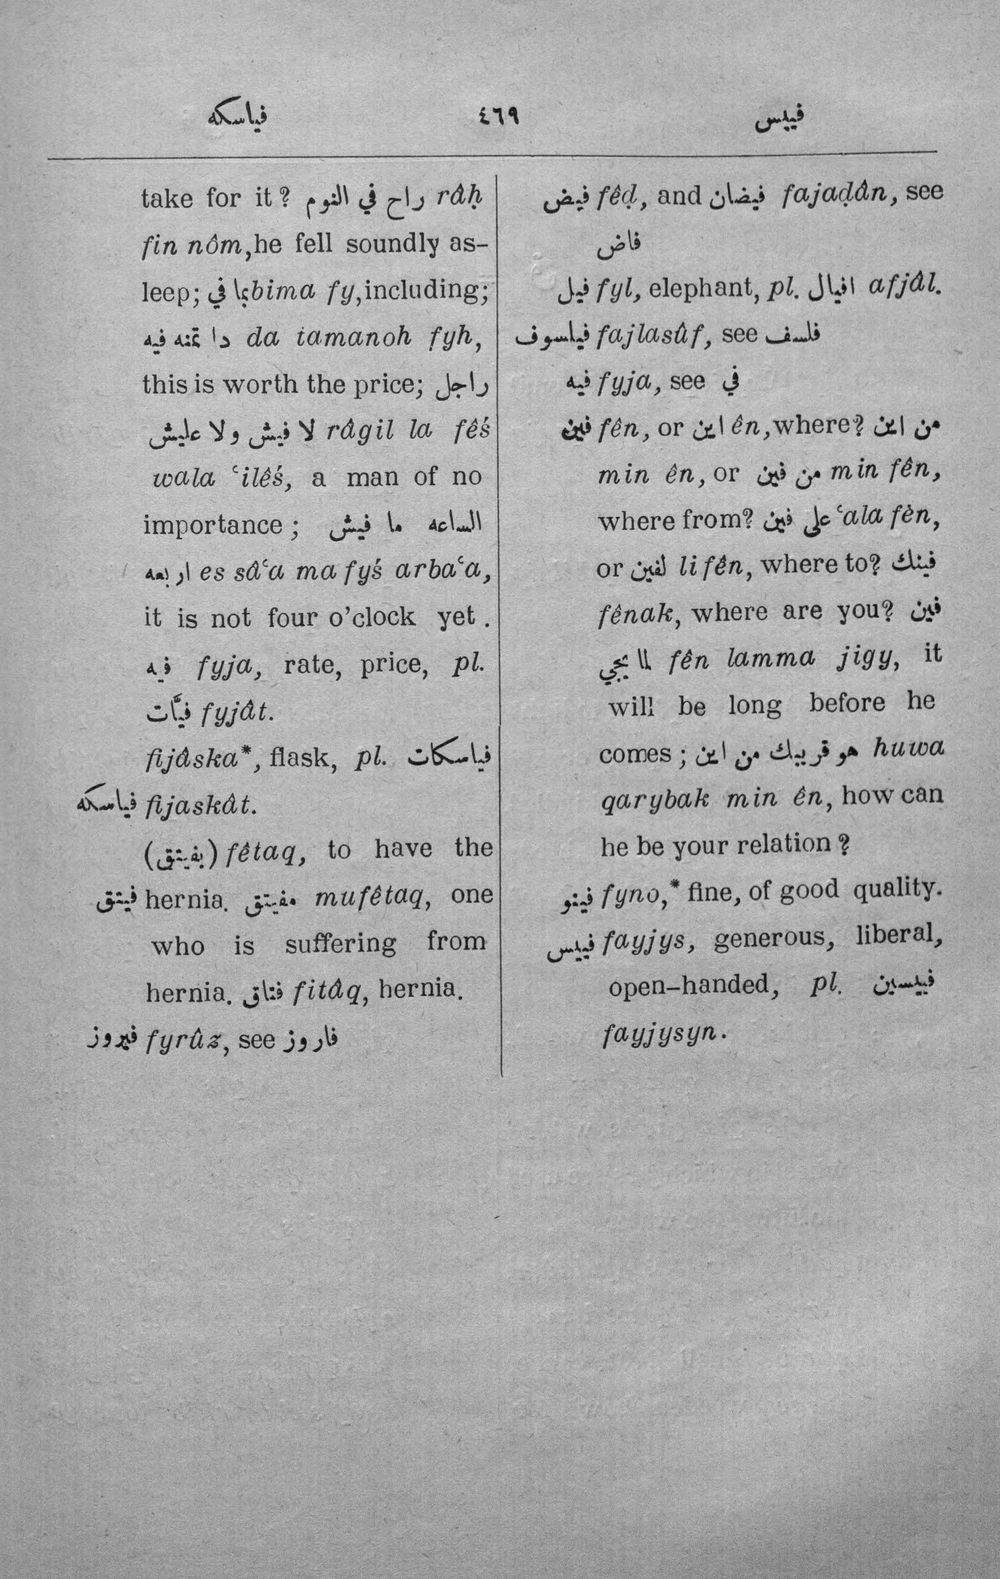 فياسكه ٤٦٩ فييس
take for it? راح في النوم râḥ
fin nôm, he fell soundly as-
leep; بما في bima fy, including;
دا تمنه فيه da tamanoh fyh,
this is worth the price; راجل
لا فيش ولا عليش râgil la fêś
wala ʿilêś, a man of no
importance; الساعه ما فيش
اربعه es sâʿa ma fyś arbaʿa,
it is not four o'clock yet.
فيه fyja, rate, price, pl.
فيَّات fyjât.
fijâska*, flask, pl. فياسكات
فياسكه fijaskât.
(بفيتق) fêtaq, to have the
فيتق hernia. مفيتق mufêtaq, one
who is suffering from
hernia. فتاق fitâq, hernia.
فيروز fyrûz, see فاروز
فيض fêḍ, and فيضان fajaḍân, see
فاض
فيل fyl, elephant, pl. افيال afjâl.
فيلسوف fajlasûf, see فلسف
فيه fyja, see في
فين fên, or اين ên, where? من اين
min ên, or من فين min fên,
where from? على فين ʿala fên,
or لفين li fên, where to? فينك
fênak, where are you? فين
لما يجي fên lamma jigy, it
will be long before he
comes; هو قريبك من اين huwa
qarybak min ên, how can
he be your relation?
فينو fyno,* fine, of good quality.
فييس fayjys, generous, liberal,
open-handed, pl. فييسين
fayjysyn.